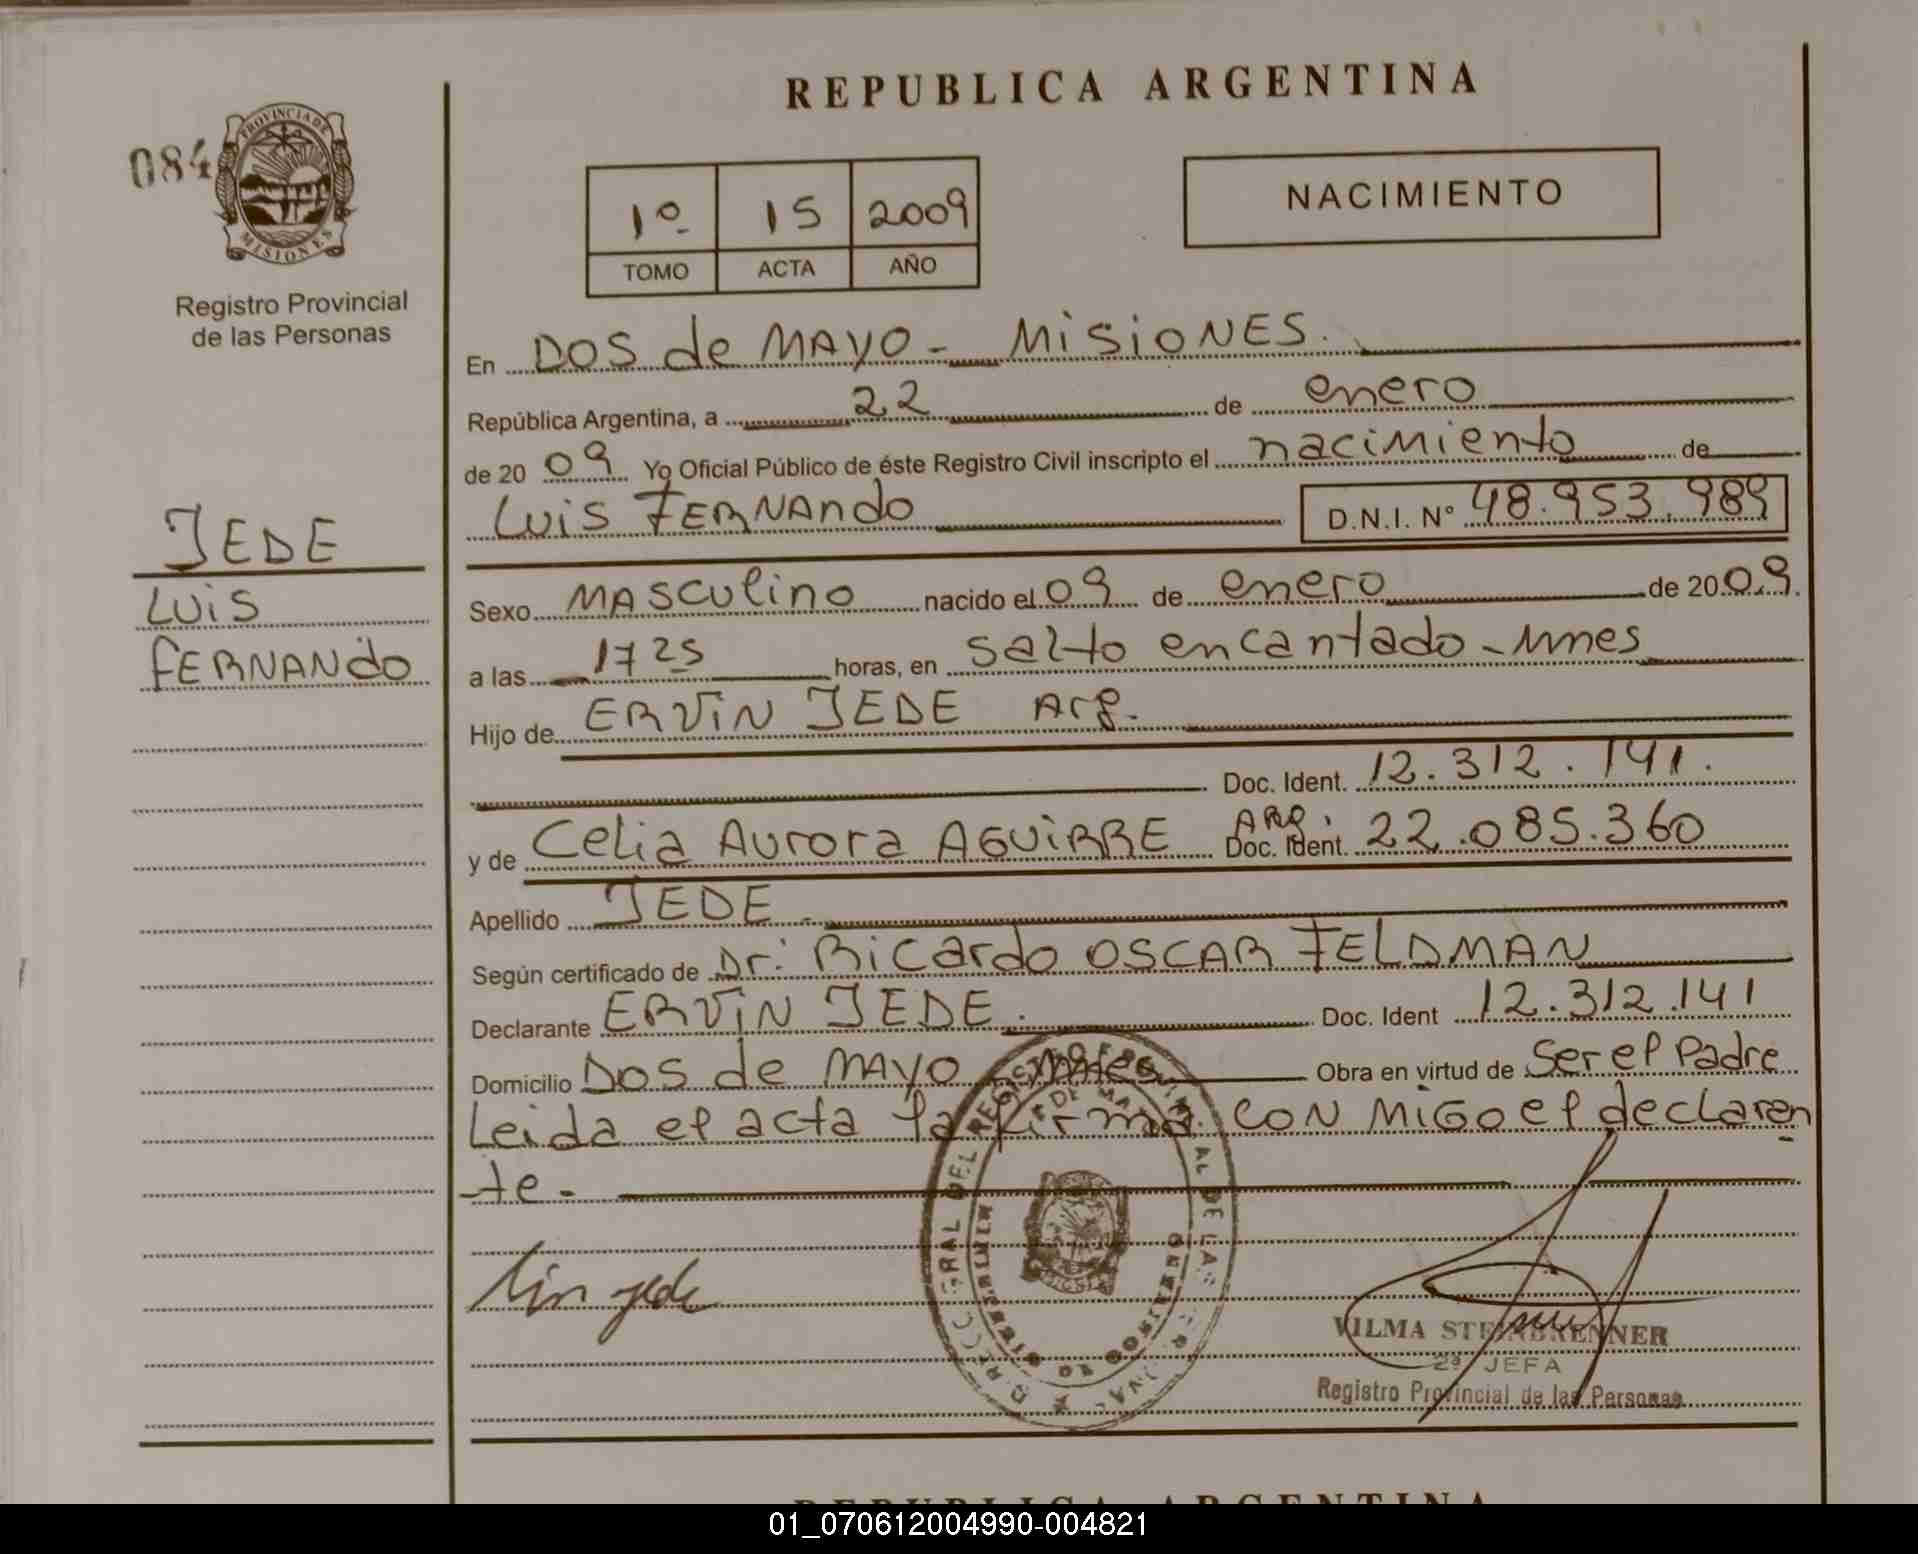 REPUBLICA ARGENTINA
084
PROVINCIA DE
MISIONES
Registro Provincial
de las Personas
1º 15 2009
TOMO ACTA AÑO
NACIMIENTO
En DOS de MAYO - MISIONES.
República Argentina, a 22 de enero
de 20 09 Yo Oficial Público de éste Registro Civil inscripto el nacimiento de
Luis FERNANdo D.N.I. Nº 48.953.989
JEDE
LUIS
FERNANdo
Sexo MASCulino nacido el 09 de enero de 20 09.
a las 1725 horas, en Salto encantado - Mnes
Hijo de ERVIN JEDE Arg.
Doc. Ident. 12.312.141.
y de Celia Aurora AGUIRRE ARG. Doc. Ident. 22.085.360
Apellido JEDE.
Según certificado de Dr: Ricardo OSCAR FELDMAN
Declarante ERVIN JEDE. Doc. Ident 12.312.141
Domicilio DOS de MAYO Mnes Obra en virtud de Ser el Padre
Leida el acta la firma CON MIGO el declaren
te.
VILMA STEINBRENNER
2ª JEFA
Registro Provincial de las Personas
REPUBLICA ARGENTINA
01_070612004990-004821